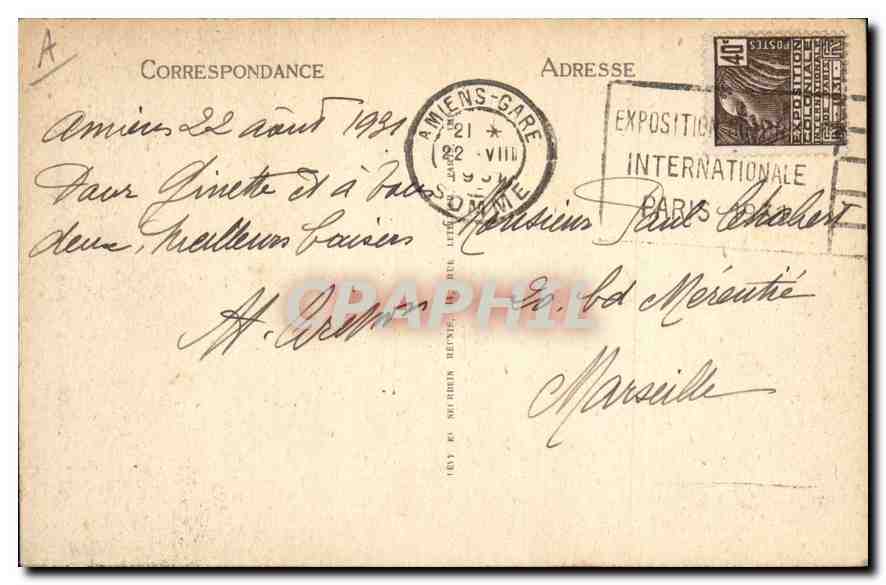 A
CORRESPONDANCE
Amiens 22 août 1931
Pour Ginette et à vous
deux, Meilleurs baisers
ADRESSE
Monsieur Paul Chabert
20. bd Mérentié
Marseille
AMIENS-GARE
21 *
22 VIII
1931
SOMME
EXPOSITION
INTERNATIONALE
PARIS 1931
40c
POSTES
EXPOSITION
COLONIALE
INTERNATIONALE
PARIS 1931
LÉVY ET NEURDEIN RÉUNIS, RUE
CPAPHIL